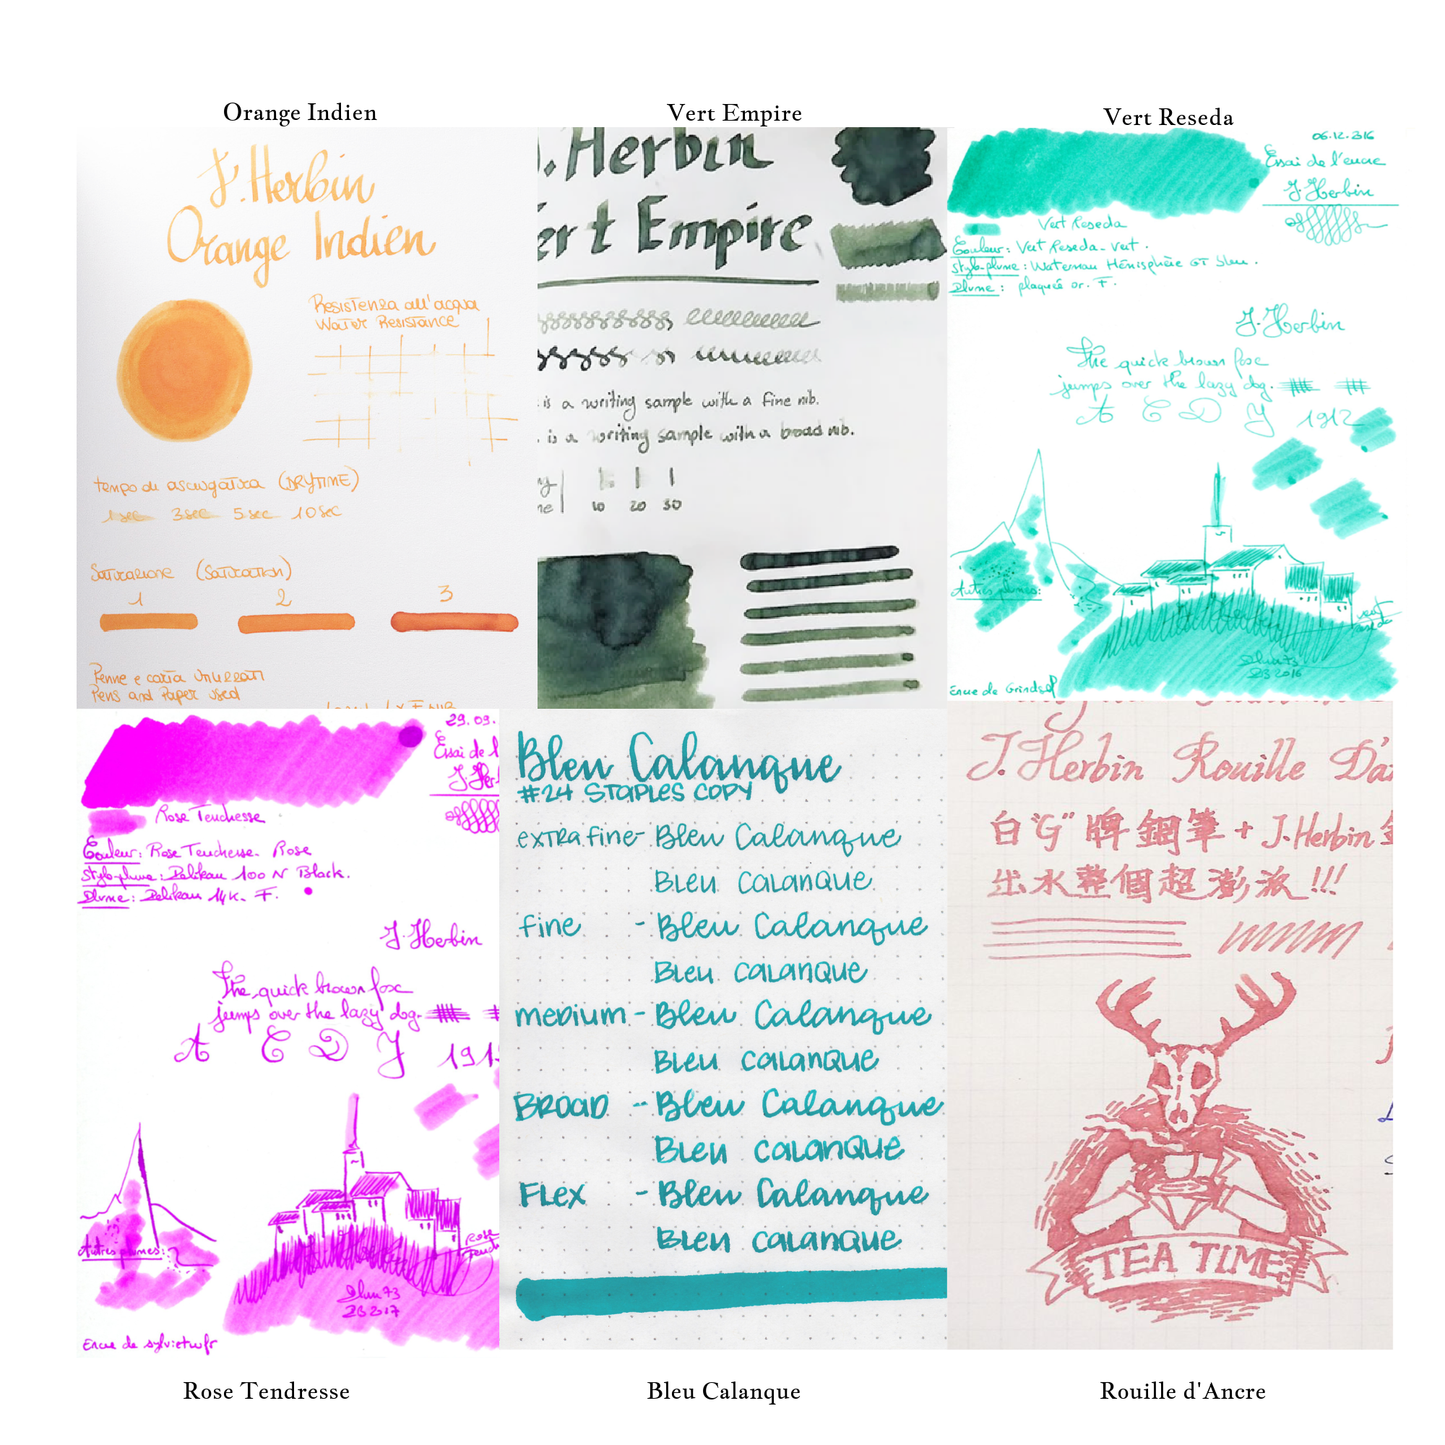 Orange Indien
Vert Empire
Vert Reseda
J. Herbin
Orange Indien
Resistenza all'acqua
Water Resistance
tempo di asciugatura (DRYTIME)
1 sec 3 sec 5 sec 10 sec
Saturazione (Saturation)
1 2 3
Penne e carta
Pens and Paper used
J. Herbin
Vert Empire
is a writing sample with a fine nib.
is a writing sample with a broad nib.
10 20 30
Essai de l'encre
J. Herbin
Vert Reseda
Couleur: Vert Reseda - Vert.
Stylo-plume: Waterman Hémisphère GT bleu.
Plume: plaqué or. F.
J. Herbin
The quick brown fox
jumps over the lazy dog.
A C D J 1912
Autres plumes:
Encre de
29.09.
Essai de l
J. Her
Rose Tendresse
Couleur: Rose Tendresse. Rose
Stylo-plume: Pelikan 100 N Black.
Plume: Pelikan 14K. F.
J. Herbin
The quick brown fox
jumps over the lazy dog.
A C D J 191
Autres plumes:
Encre de
Bleu Calanque
#24 STAPLES COPY
extra fine - Bleu Calanque
Bleu Calanque
fine - Bleu Calanque
Bleu Calanque
medium - Bleu Calanque
Bleu Calanque
BROAD - Bleu Calanque
Bleu Calanque
FLEX - Bleu Calanque
Bleu Calanque
J. Herbin Rouille D'a
白"G"牌鋼筆 + J. Herbin
出水整個超澎派!!!
TEA TIME
Rose Tendresse
Bleu Calanque
Rouille d'Ancre